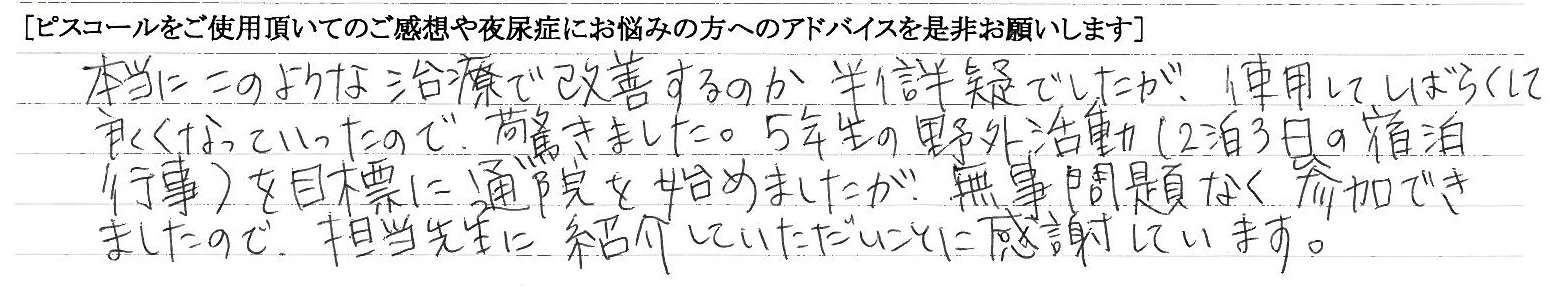 [ピスコールをご使用頂いてのご感想や夜尿症にお悩みの方へのアドバイスを是非お願いします]
本当にこのような治療で改善するのか半信半疑でしたが、使用してしばらくして
良くなっていったので、驚きました。5年生の野外活動(2泊3日の宿泊
行事)を目標に通院を始めましたが、無事問題なく参加でき
ましたので、担当先生に紹介していただいことに感謝しています。